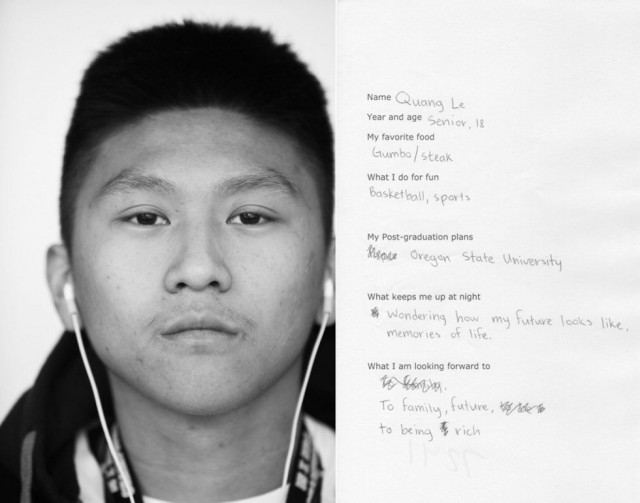 Name Quang Le
Year and age Senior, 18
My favorite food
Gumbo/steak
What I do for fun
Basketball, sports
My Post-graduation plans
Oregon State University
What keeps me up at night
Wondering how my future looks like,
memories of life.
What I am looking forward to
To family, future,
to being rich